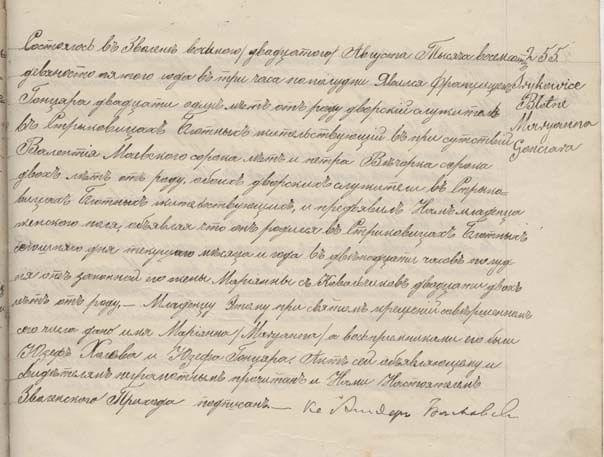 Состоялось въ Зволенѣ восьмого /двадцатого/ Августа Тысяча восемсотъ
девяносто пятого года въ три часа по полудни. Явился Францишекъ
Гонцара двадцати одно лѣтъ отъ роду дворскій служитель
въ Стрыковицахъ Блотныхъ жительствующий въ присутствіи
Валентія Маевскаго сорока лѣтъ и петра сорока
двохъ лѣтъ отъ роду, обоихъ дворскихъ служители въ Стрыко-
вицахъ Блотныхъ жительствующихъ, и предъявилъ Намъ младенца
женского пола, объявляя что онъ родился въ Стриковицахъ Блотныхъ
дня текущаго мѣсяца и года въ двѣнадцати часовъ полуд-
ня отъ законной его жены Маріанны съ Ковальчиковъ двадцати двохъ
лѣтъ отъ роду. — Младенцу Этому при святомъ крещеніи совѣршенномъ
сего числа дано имя Маріанна /Maryanna/ а воспріемниками его были
Юзефъ и Юзефа Гонцара. Актъ сей объявляющему и
свидѣтелямъ неграмотнымъ прочитанъ и Нами Настоятелемъ
Зволенского Прихода подписанъ —
255.
Strykowice
Błotne
Maryanna
Goncara